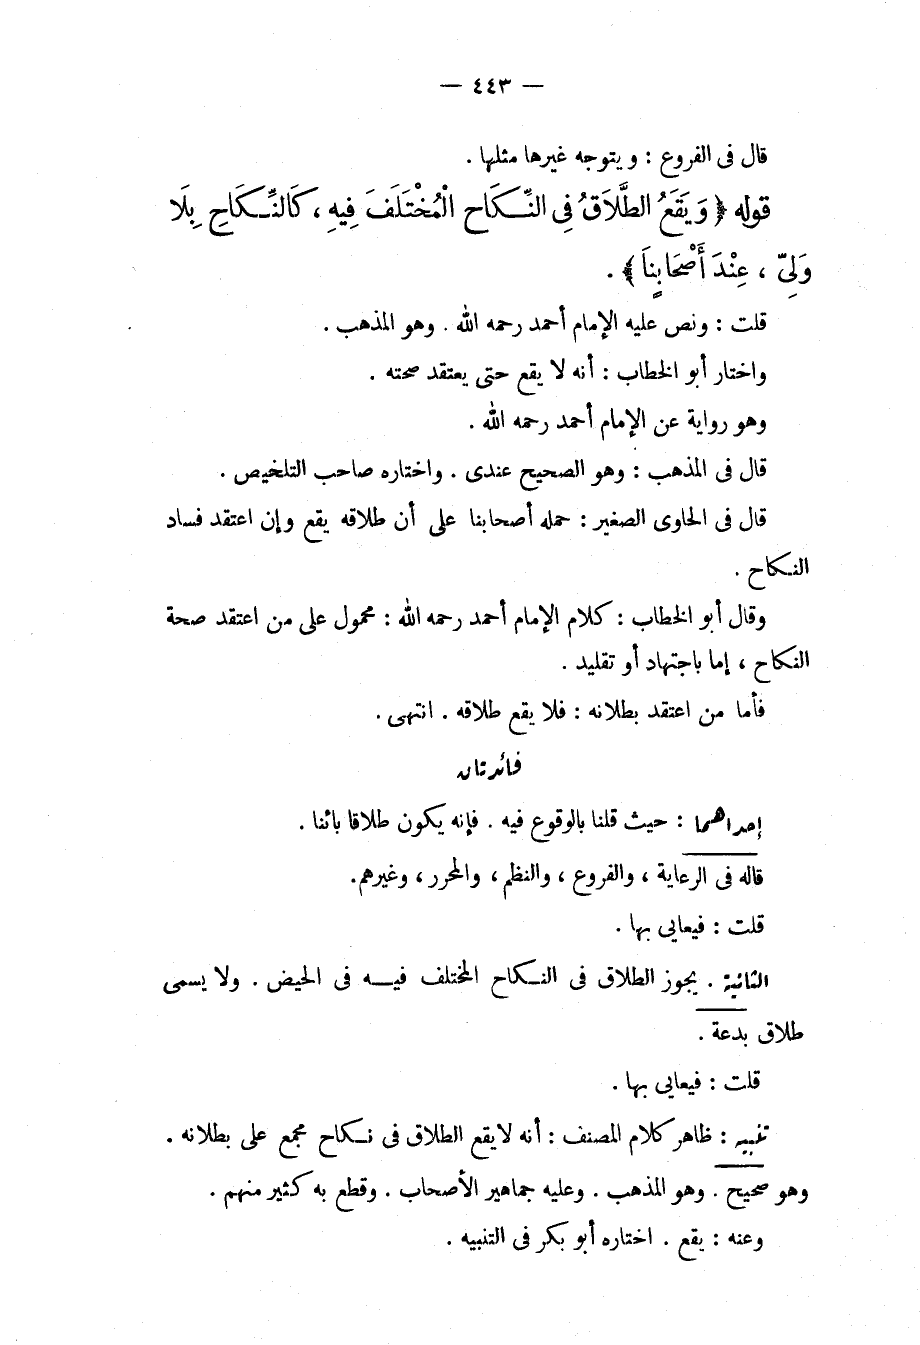 — ٤٤٣ —
قال فى الفروع : ويتوجه غيرها مثلها .
قوله ﴿ وَيَقَعُ الطَّلَاقُ فِى النِّكَاحِ الْمُخْتَلَفَ فِيهِ ، كَالنِّكَاحِ بِلَا
وَلِىّ ، عِنْدَ أَصْحَابِنَا ﴾ .
قلت : ونص عليه الإمام أحمد رحمه الله . وهو المذهب .
واختار أبو الخطاب : أنه لا يقع حتى يعتقد صحته .
وهو رواية عن الإمام أحمد رحمه الله .
قال فى المذهب : وهو الصحيح عندى . واختاره صاحب التلخيص .
قال فى الحاوى الصغير : حمله أصحابنا على أن طلاقه يقع وإن اعتقد فساد
النكاح .
وقال أبو الخطاب : كلام الإمام أحمد رحمه الله : محمول على من اعتقد صحة
النكاح ، إما باجتهاد أو تقليد .
فأما من اعتقد بطلانه : فلا يقع طلاقه . انتهى .
فائدتان
إحداهما : حيث قلنا بالوقوع فيه . فإنه يكون طلاقا بائنا .
قاله فى الرعاية ، والفروع ، والنظم ، والمحرر ، وغيرهم .
قلت : فيعايى بها .
الثانية . يجوز الطلاق فى النكاح المختلف فيه فى الحيض . ولا يسمى
طلاق بدعة .
قلت : فيعايى بها .
تنبيه : ظاهر كلام المصنف : أنه لا يقع الطلاق فى نكاح مجمع على بطلانه .
وهو صحيح . وهو المذهب . وعليه جماهير الأصحاب . وقطع به كثير منهم .
وعنه : يقع . اختاره أبو بكر فى التنبيه .